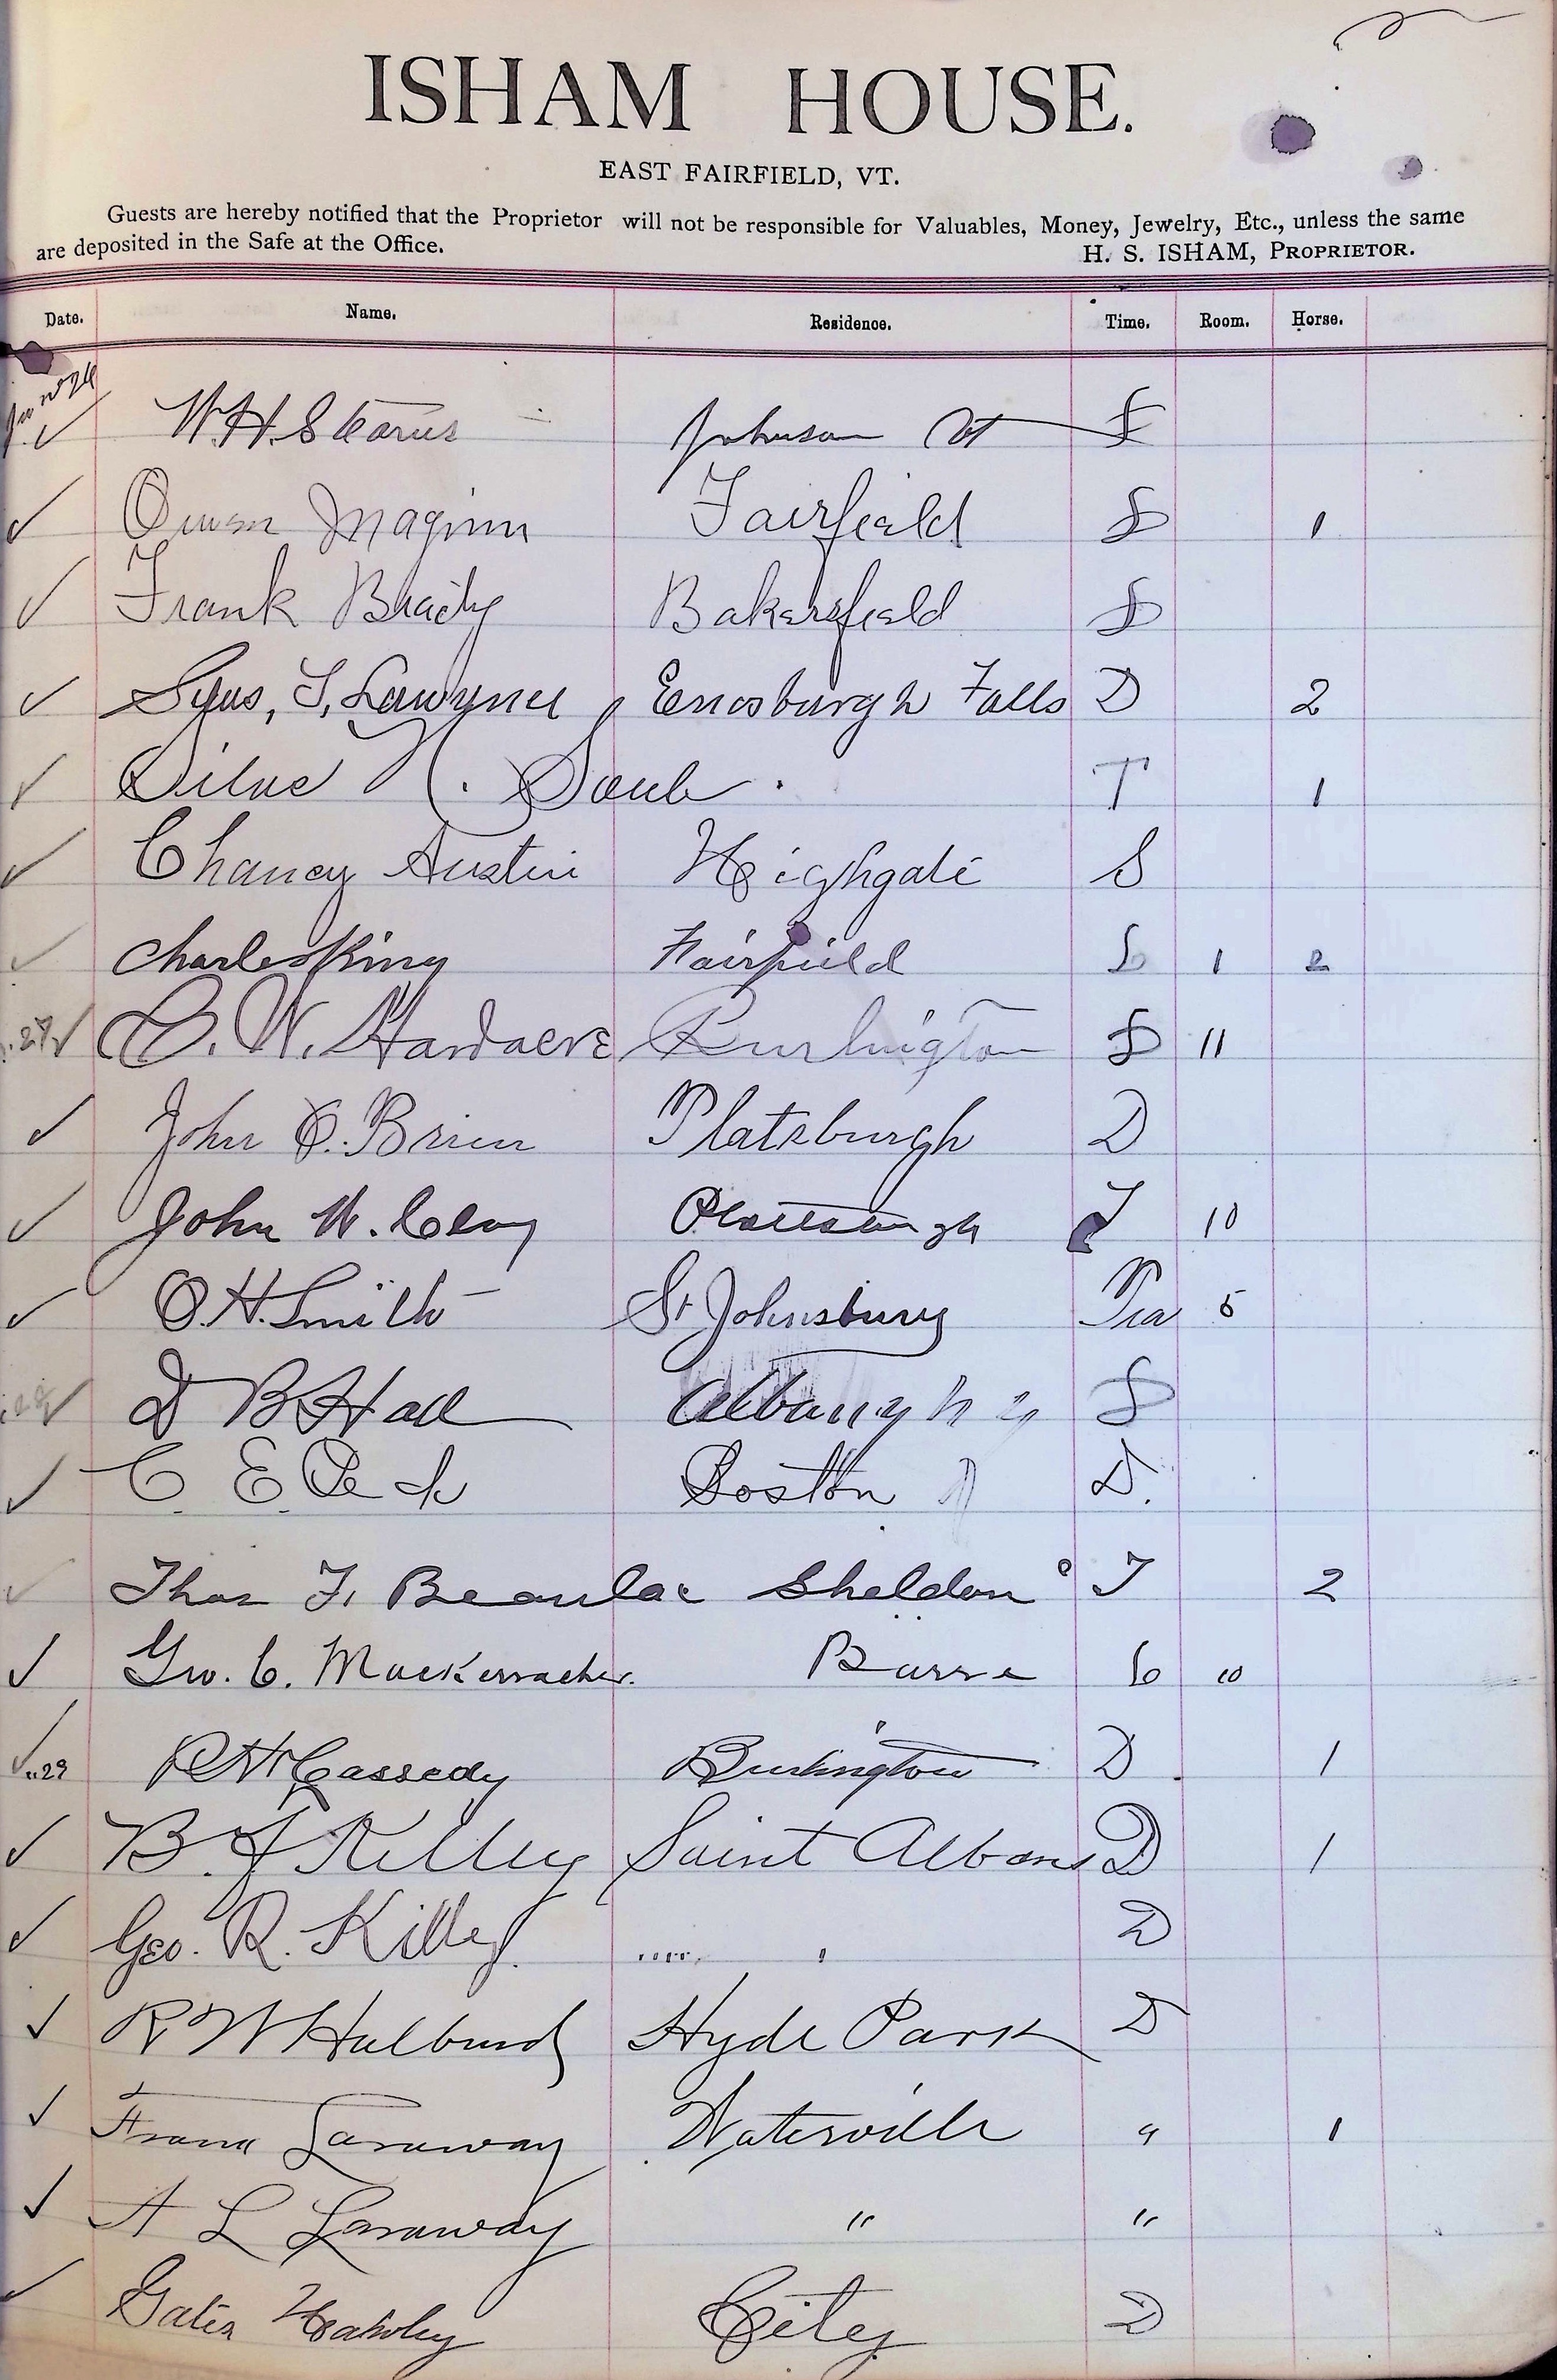 ISHAM HOUSE.
EAST FAIRFIELD, VT.
Guests are hereby notified that the Proprietor will not be responsible for Valuables, Money, Jewelry, Etc., unless the same
are deposited in the Safe at the Office. H. S. ISHAM, PROPRIETOR.
Date. Name. Residence. Time. Room. Horse.
26 W. H. Stearns Johnson Vt
Owen Maginn Fairfield 1
Frank Brady Bakersfield
Enosburgh Falls D 2
Silas N. Soule T 1
Chancy Austin Highgate S
Charles King Fairfield 1 2
27 Burlington 11
John O. Brien Platsburgh D
John W. Clay Plattsburgh T 10
O. H. Smith St Johnsbury 5
D B Hall Albany N Y
C. E. Peck Boston D.
Thos F. Beaulac Sheldon T 2
Geo. C. Mackerracher. Barre 10
" 29 Cassedy Burlington D 1
B. J. Kelley Saint Albans D 1
Geo. R. Killey. " " D
R W Hulburd Hyde Park D
Frank Laraway Waterville " 1
A L Laraway " "
Gates Hawley City D